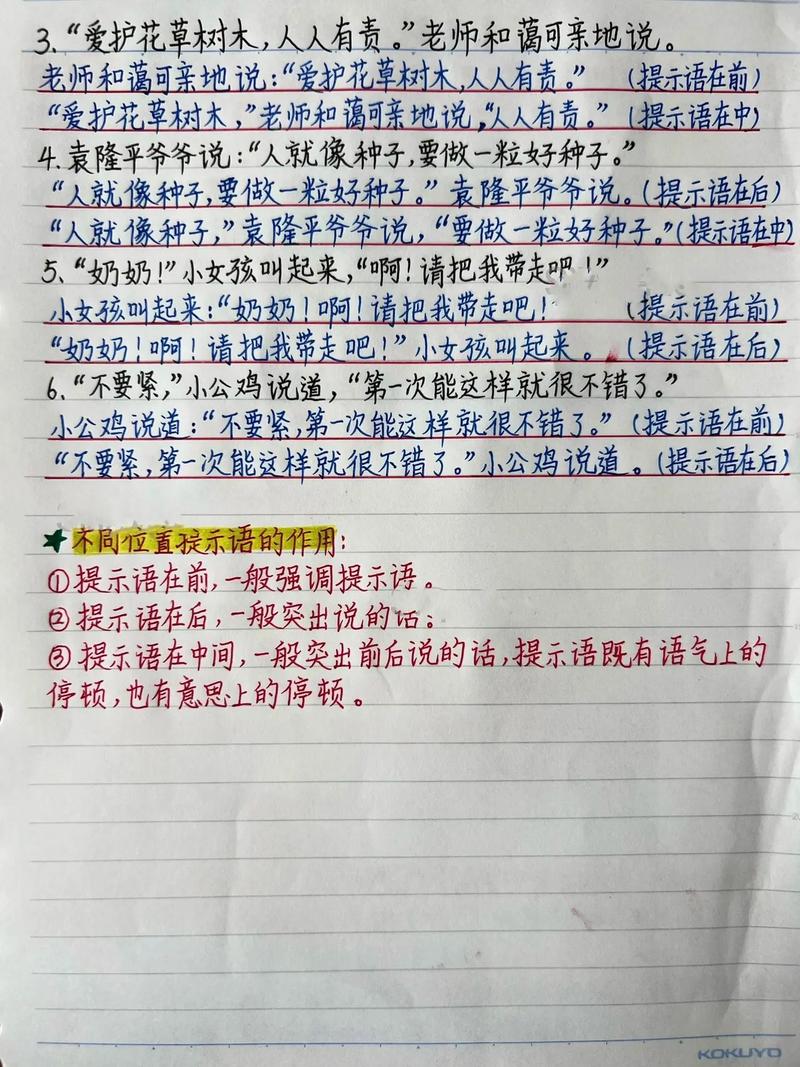 3、“爱护花草树木，人人有责。”老师和蔼可亲地说。
老师和蔼可亲地说：“爱护花草树木，人人有责。”（提示语在前）
“爱护花草树木，”老师和蔼可亲地说，“人人有责。”（提示语在中）
4、袁隆平爷爷说：“人就像种子，要做一粒好种子。”
“人就像种子，要做一粒好种子。”袁隆平爷爷说。（提示语在后）
“人就像种子，”袁隆平爷爷说，“要做一粒好种子。”（提示语在中）
5、“奶奶！”小女孩叫起来，“啊！请把我带走吧！”
小女孩叫起来：“奶奶！啊！请把我带走吧！（提示语在前）
“奶奶！啊！请把我带走吧！”小女孩叫起来。（提示语在后）
6、“不要紧，”小公鸡说道，“第一次能这样就很不错了。”
小公鸡说道：“不要紧，第一次能这样就很不错了。”（提示语在前）
“不要紧，第一次能这样就很不错了。”小公鸡说道。（提示语在后）
★不同位置提示语的作用：
①提示语在前，一般强调提示语。
②提示语在后，一般突出说的话；
③提示语在中间，一般突出前后说的话，提示语既有语气上的
停顿，也有意思上的停顿。
KOKUYO